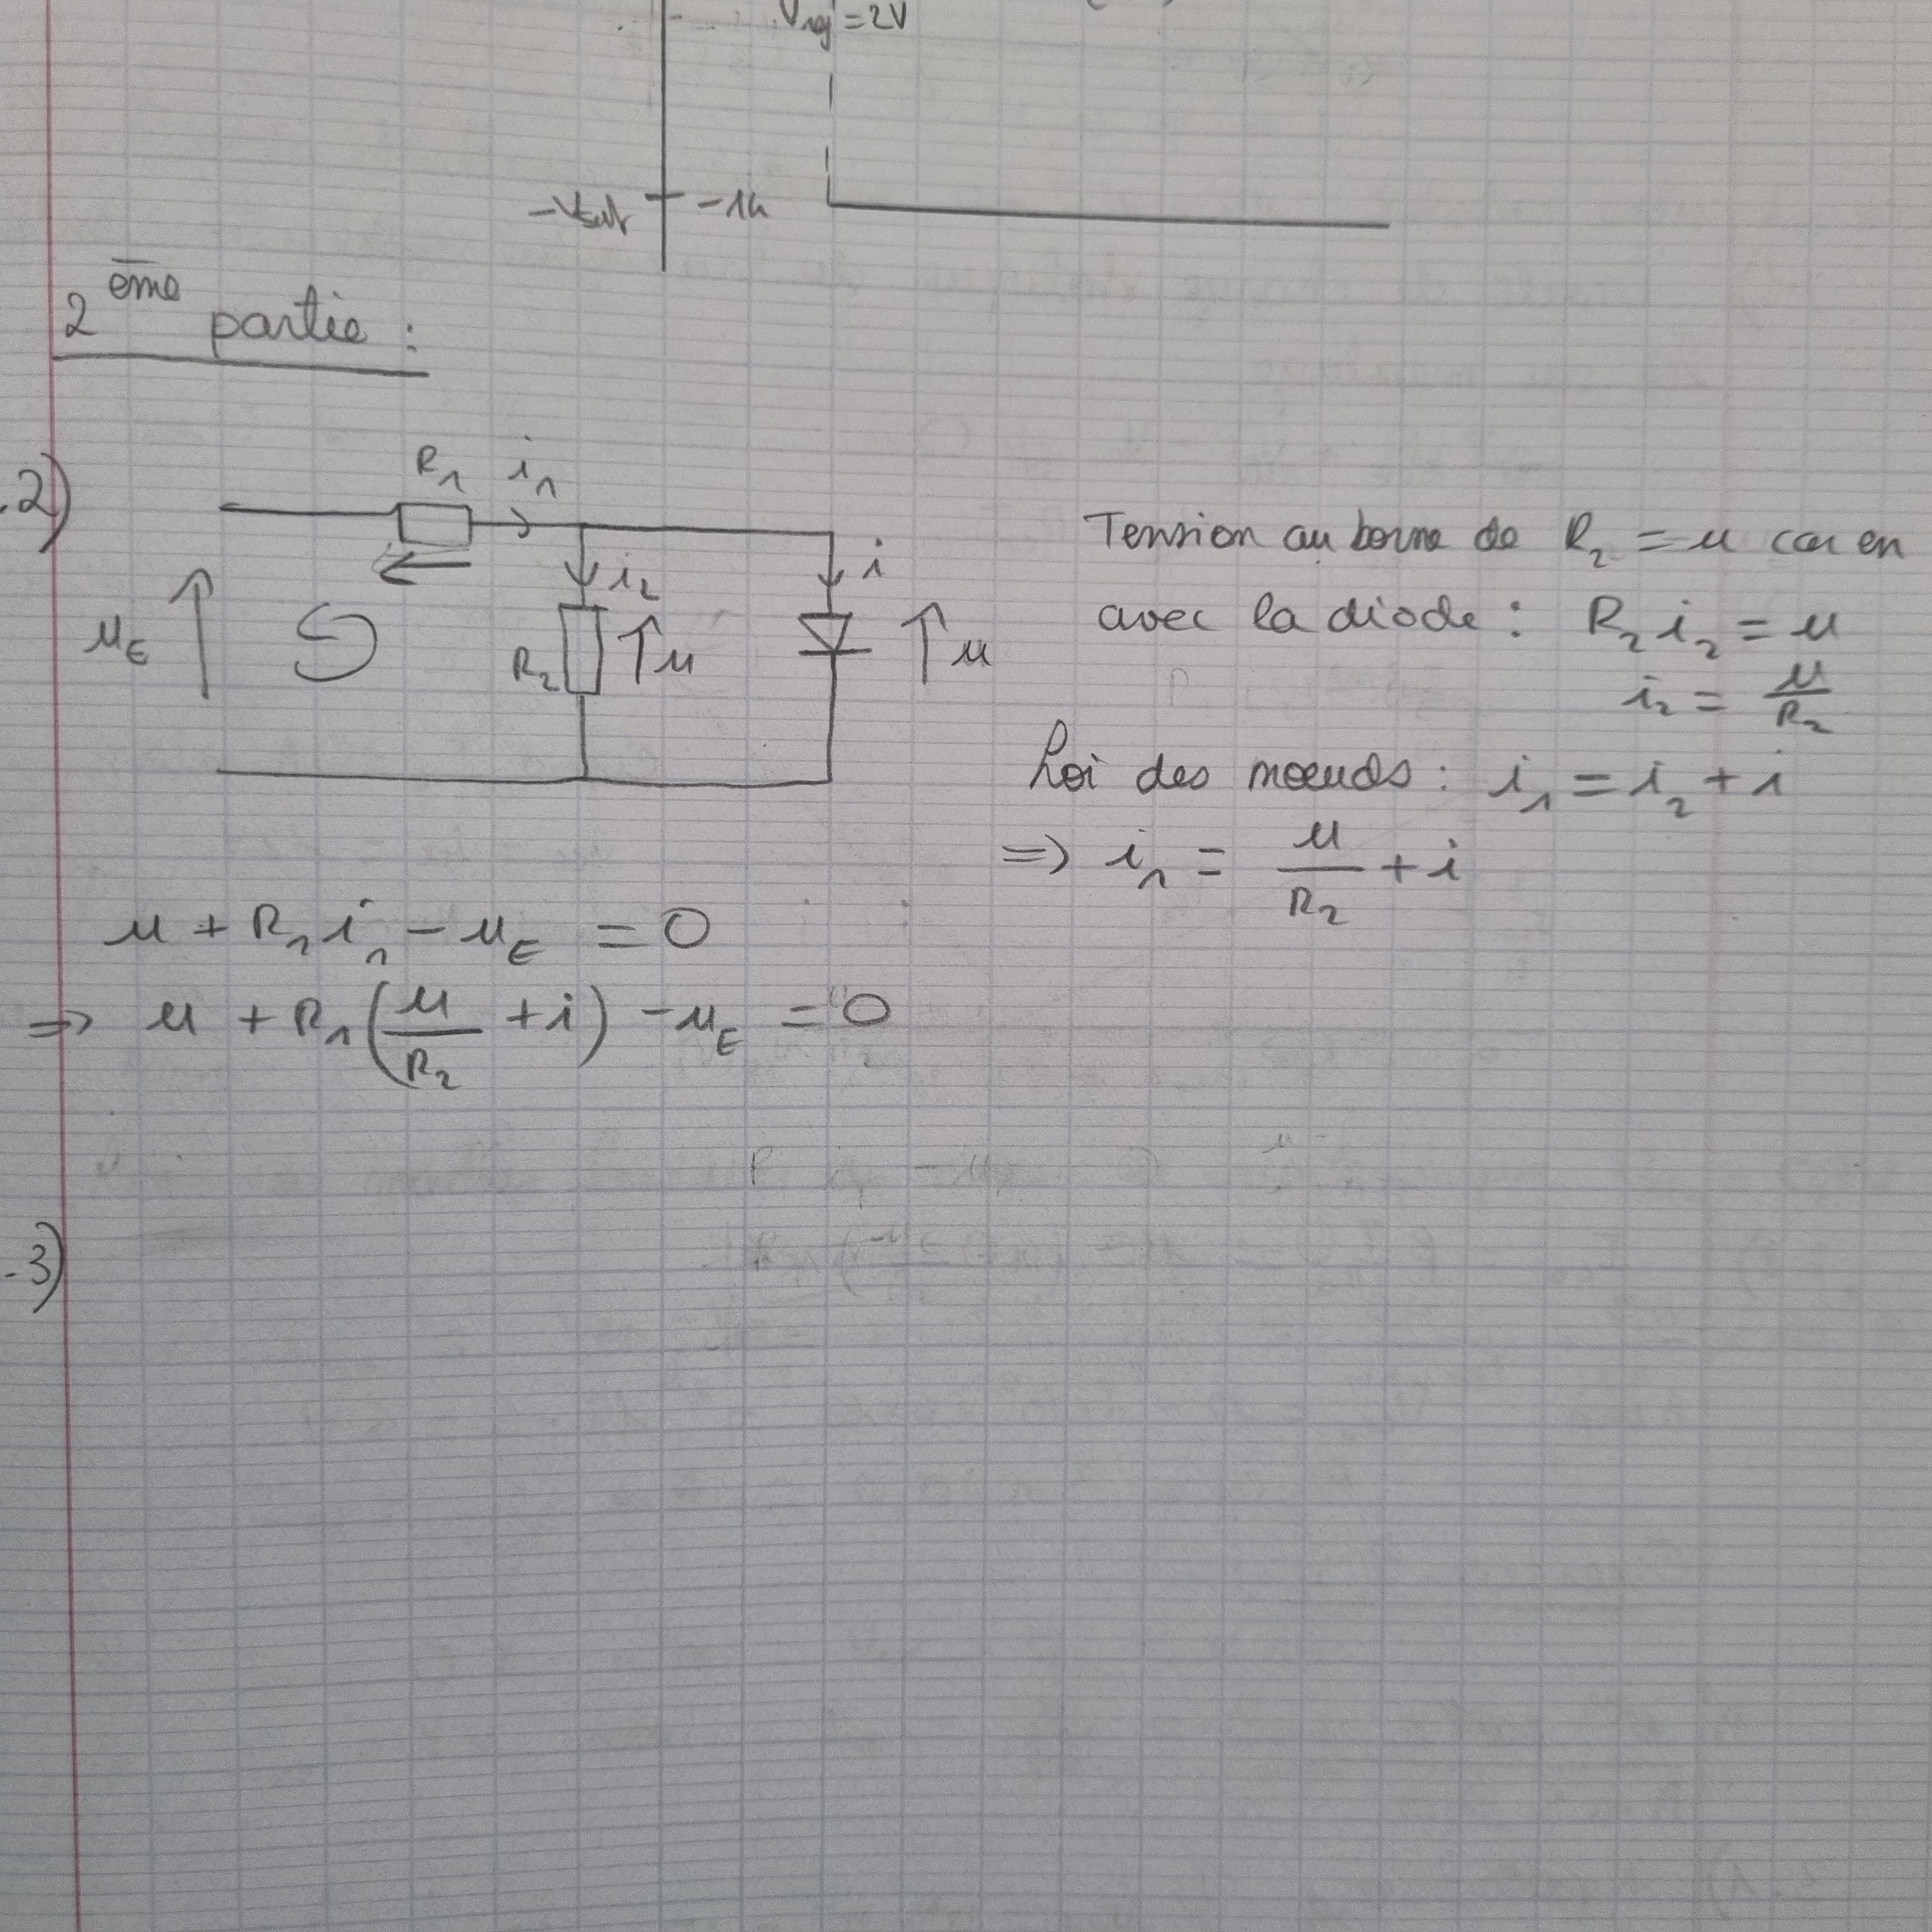 Vref = 2V
-Vsat -14
2ème partie :
.2)
R₁ i₁
i₂ i
u_E R₂ u u
Tension au borne de R₂ = u car en
avec la diode : R₂ i₂ = u
i₂ = u/R₂
Loi des nœuds : i₁ = i₂ + i
=> i₁ = u/R₂ + i
u + R₁ i₁ - u_E = 0
=> u + R₁ (u/R₂ + i) - u_E = 0
.3)